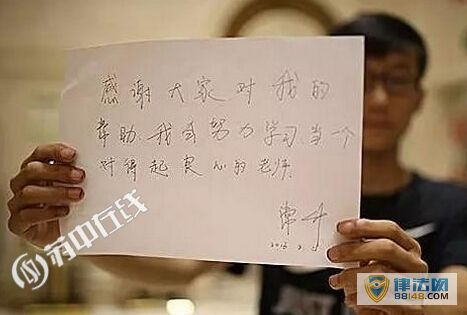 感谢大家对我的
帮助,我会努力学习,当一个
对得起良心的老师.
苏中在线
律法网
88148.COM